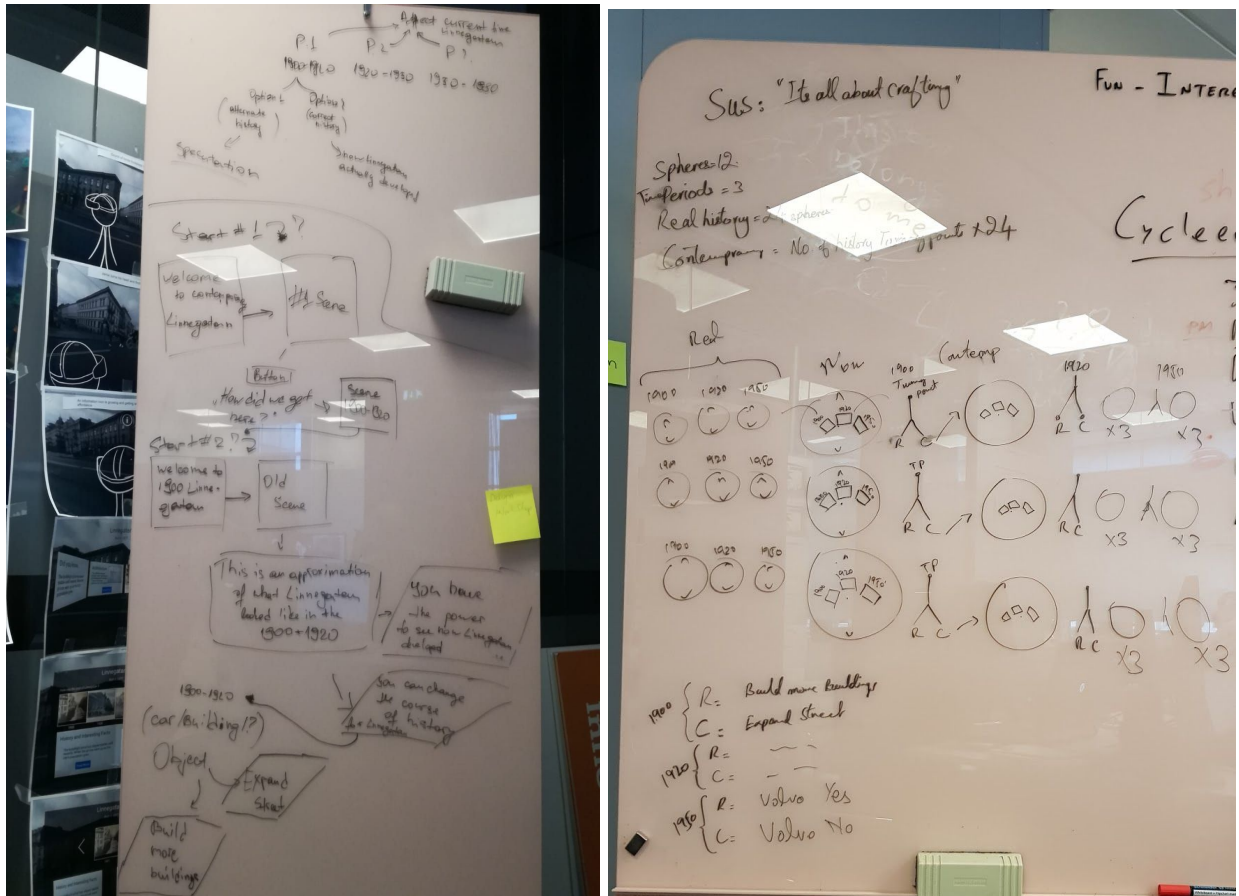 Affect current time
Linnegatan
P1 P2 P3.
1900-1920 1920-1950 1950-
Option 1 Option 2
(alternate
history) (correct
history)
Speculation
Show linnegatan
actually developed
Start #1 ?
Welcome
to contemporary
Linnegatan
#1 Scene
Button
"How did we get
here?"
Scene
Start #2 ?
Welcome to
1900 Linne-
gatan
Old
Scene
This is an
of what Linnegatan
looked like in the
1900-1920
You have
the power
to see how Linnegatan
You can change
the course
of history
Linnegatan
1900-1920
(car/Building/?)
Object
Expand
Street
Build
more
buildings
Sus: "Its all about Crafting"
FUN - INTERE
Spheres=12
Time Periods = 3
Real history = 24 spheres
Contemprary = No. of history points x24
Cyclee
Real
Now
Contemp
1900 1920 1950
1920
1900
Turning
point
R C
1920
R C
x3
1950
x3
1900 1920 1950
1920 1950
TP
R C
R C
x3
x3
1900 1920 1950
1920 1950
TP
R C
R C
x3
x3
1900 { R = Build more Buildings
C = Expand Street
1920 { R =
C =
1950 { R = Volvo Yes
C = Volvo No